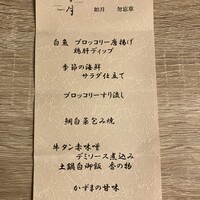 月
如月 勿忘草
白魚 ブロッコリー唐揚げ
鶏肝ディップ
季節の海鮮
サラダ仕立て
ブロッコリーすり流し
鯛白菜包み焼
牛タン赤味噌
デミソース煮込み
土鍋白御飯 香の物
かずまの甘味